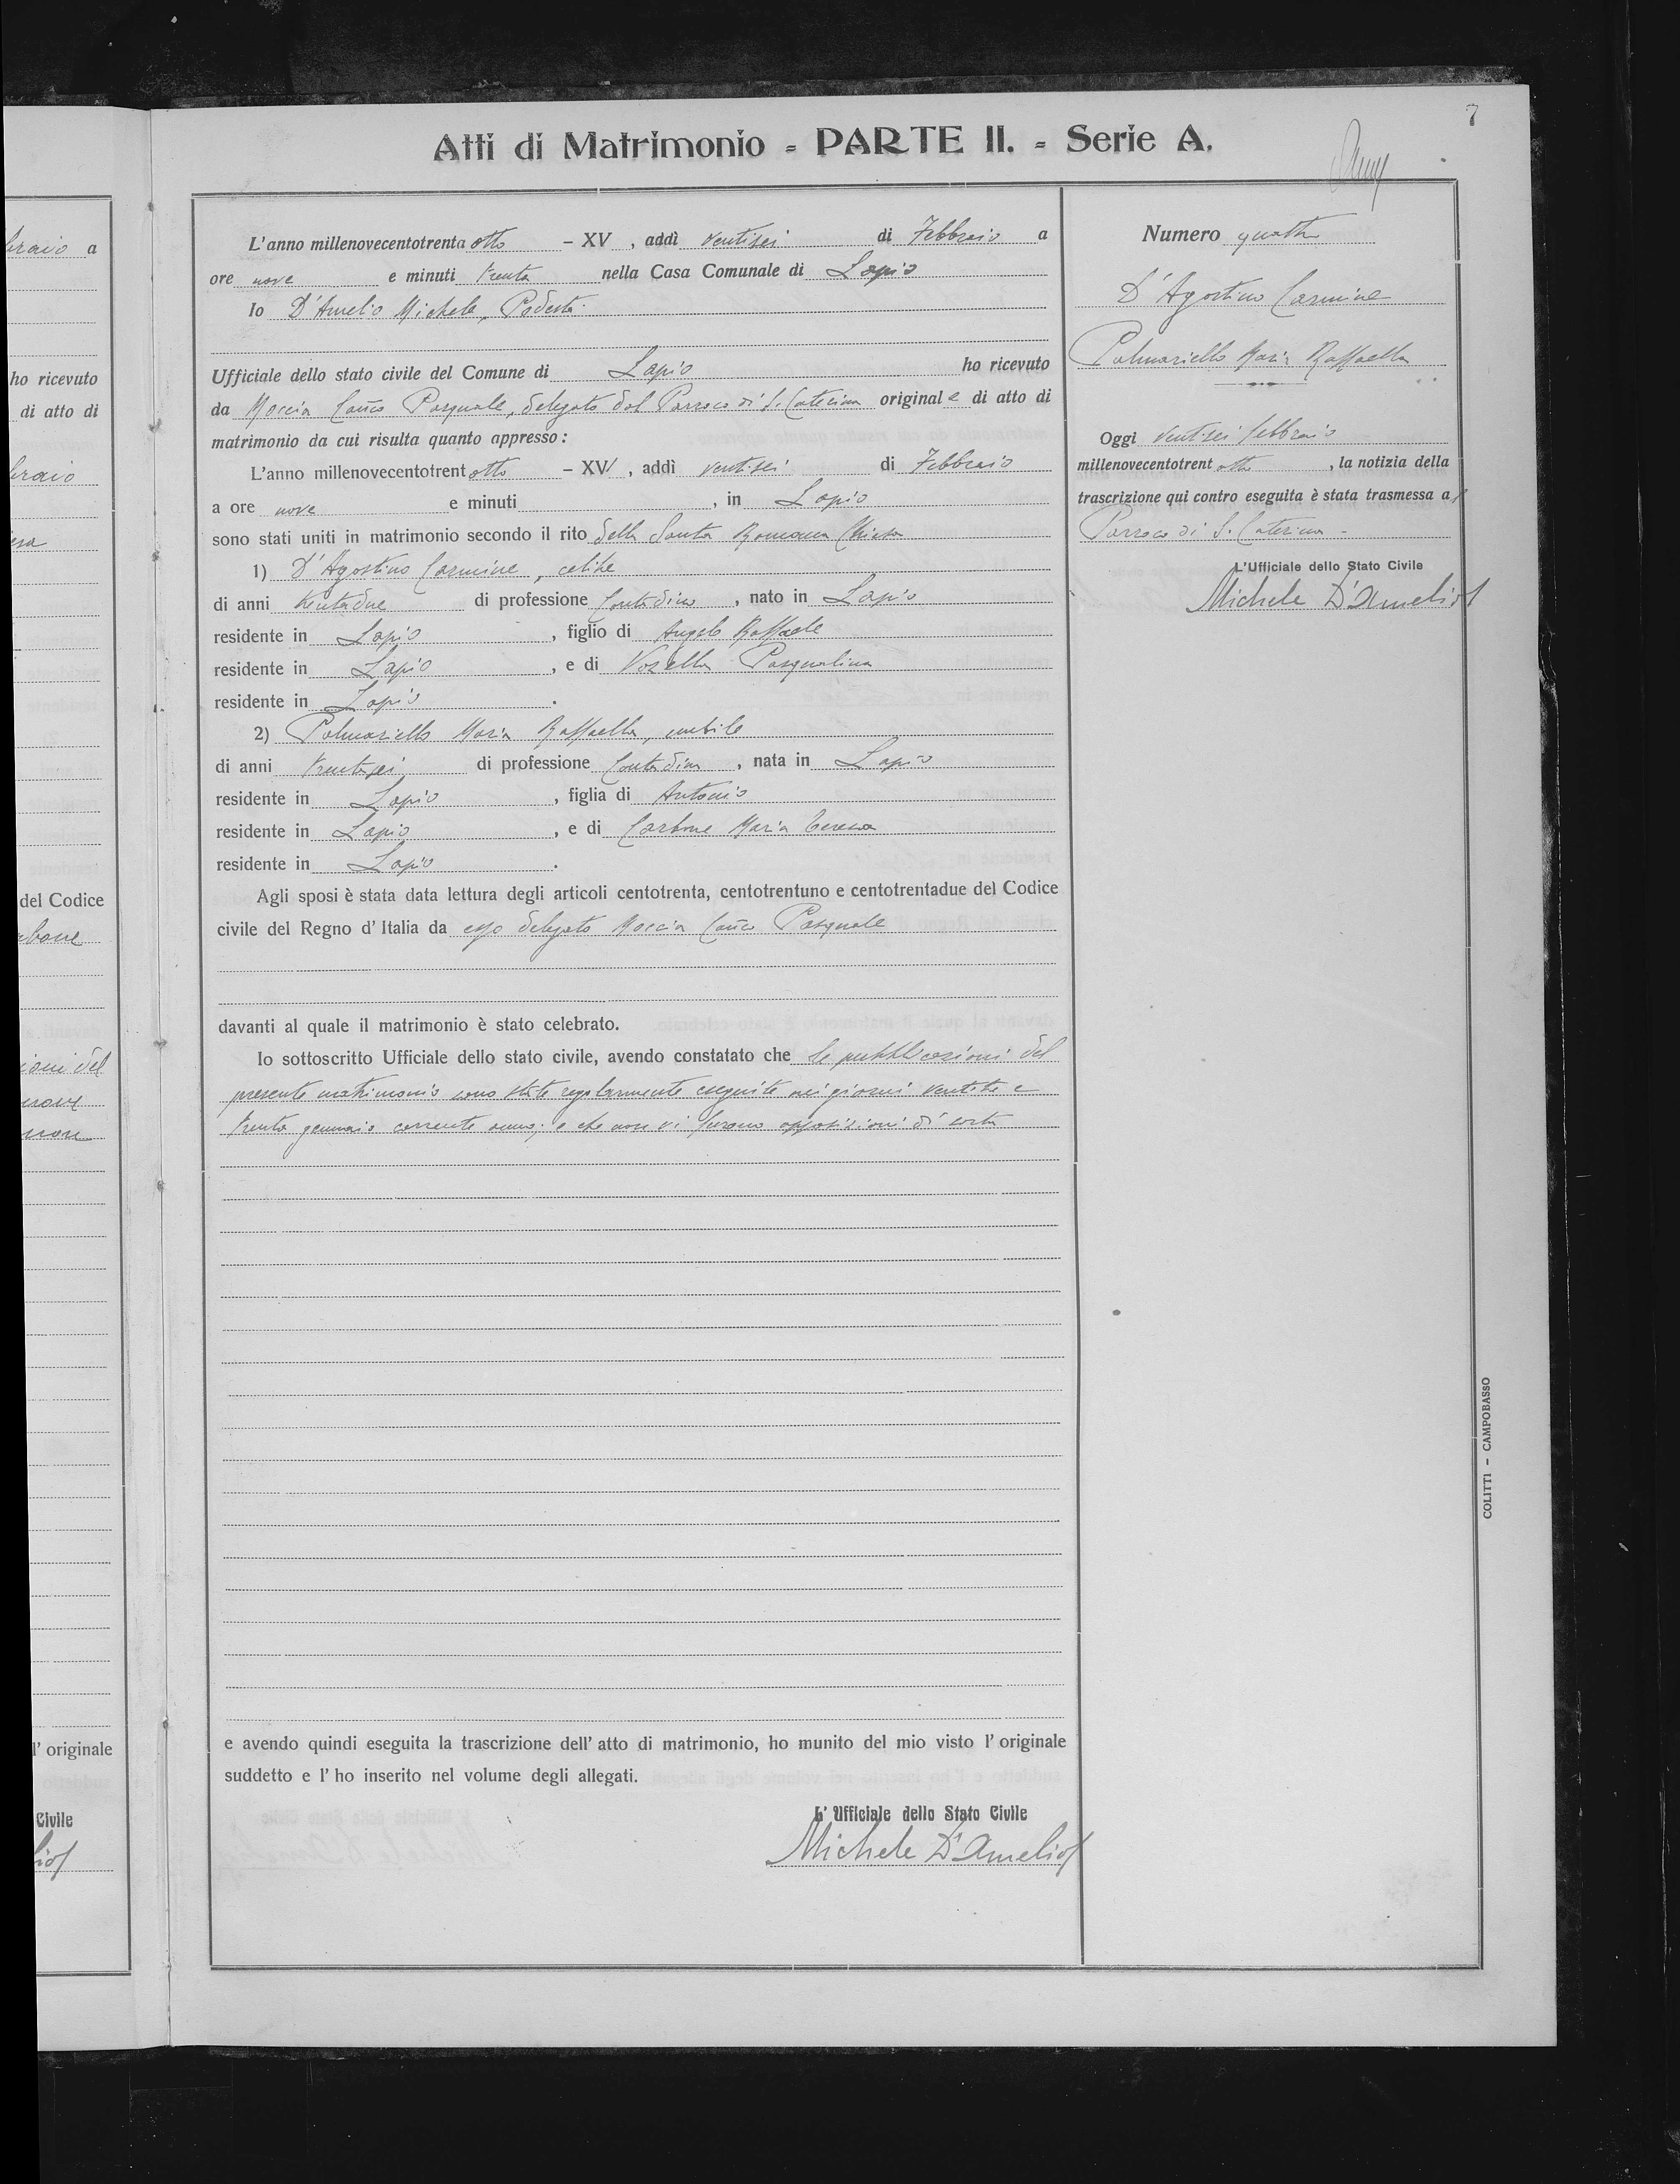 7
Atti di Matrimonio - PARTE II. - Serie A.
L'anno millenovecentotrenta otto - XV , addì ventisei di Febbraio a
ore nove e minuti trenta nella Casa Comunale di Lapio
Io D'Amelio Michele, Podestà
Ufficiale dello stato civile del Comune di Lapio ho ricevuto
da Moccia Can.co Pasquale, delegato dal Parroco di S. Caterina originale di atto di
matrimonio da cui risulta quanto appresso:
L'anno millenovecentotrent otto - XV , addì ventisei di Febbraio
a ore nove e minuti , in Lapio
sono stati uniti in matrimonio secondo il rito della Santa Romana Chiesa
1) D'Agostino Carmine, celibe
di anni trentadue di professione Contadino , nato in Lapio
residente in Lapio , figlio di Angelo Raffaele
residente in Lapio , e di Vozella Pasqualina
residente in Lapio .
2) Palmariello Maria Raffaella, nubile
di anni trentasei di professione Contadina , nata in Lapio
residente in Lapio , figlia di Antonio
residente in Lapio , e di Carbone Maria Teresa
residente in Lapio .
Agli sposi è stata data lettura degli articoli centotrenta, centotrentuno e centotrentadue del Codice
civile del Regno d'Italia da esso delegato Moccia Can.co Pasquale
davanti al quale il matrimonio è stato celebrato.
Io sottoscritto Ufficiale dello stato civile, avendo constatato che le pubblicazioni del
presente matrimonio sono state regolarmente eseguite nei giorni ventitre e
trenta gennaio corrente anno; e che non vi furono opposizioni di sorta
e avendo quindi eseguita la trascrizione dell'atto di matrimonio, ho munito del mio visto l'originale
suddetto e l'ho inserito nel volume degli allegati.
L'Ufficiale dello Stato Civile
Michele D'Amelio
Numero quattro
D'Agostino Carmine
Palmariello Maria Raffaella
Oggi ventisei febbraio
millenovecentotrent otto , la notizia della
trascrizione qui contro eseguita è stata trasmessa al
Parroco di S. Caterina -
L'Ufficiale dello Stato Civile
Michele D'Amelio
COLITTI - CAMPOBASSO
braio a
ho ricevuto
di atto di
braio
del Codice
rbone
ioni del
non
l'originale
Civile